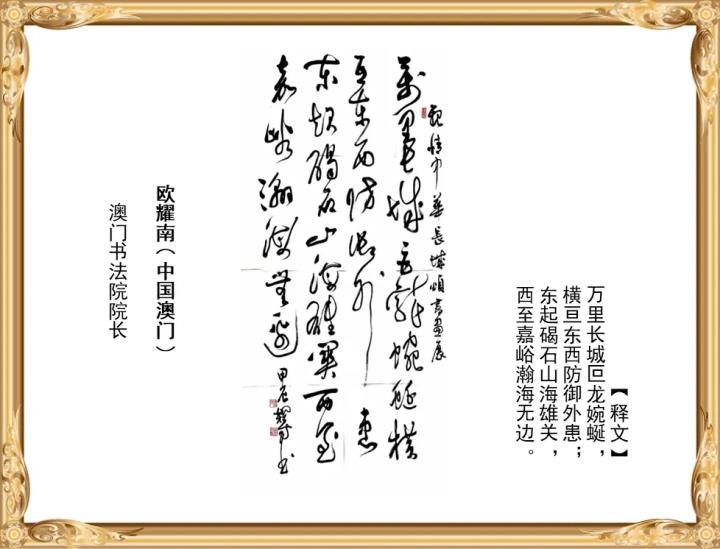 【释文】
万里长城巨龙婉蜒，
横亘东西防御外患；
东起碣石山海雄关，
西至嘉峪瀚海无边。
中華長城頌書畫展
萬里長城巨龍蜿蜒橫
亘東西防御外患
東起碣石山海雄關西至
嘉峪瀚海無邊
甲辰耀南书
欧耀南（中国澳门）
澳门书法院院长